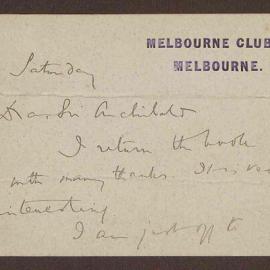 MELBOURNE CLUB
MELBOURNE.
Saturday
Dear Sir Archibald
I return the book
with many thanks. It is
interesting
I am just off to